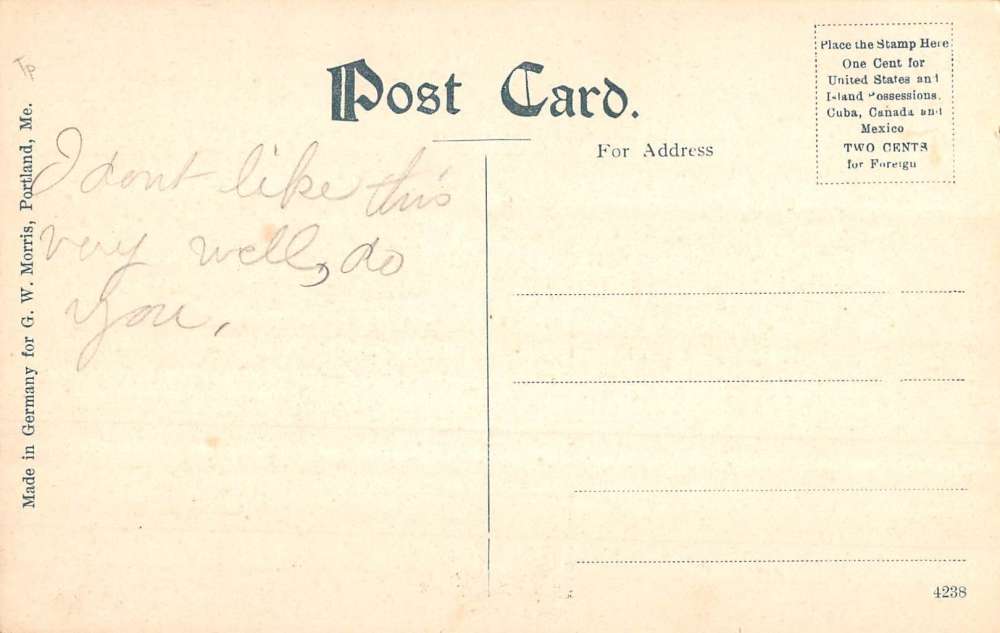 Post Card.
For Address
Place the Stamp Here
One Cent for
United States and
Island Possessions,
Cuba, Canada and
Mexico
TWO CENTS
for Foreign
I dont like this
very well, do
you,
Made in Germany for G. W. Morris, Portland, Me.
TP
4238